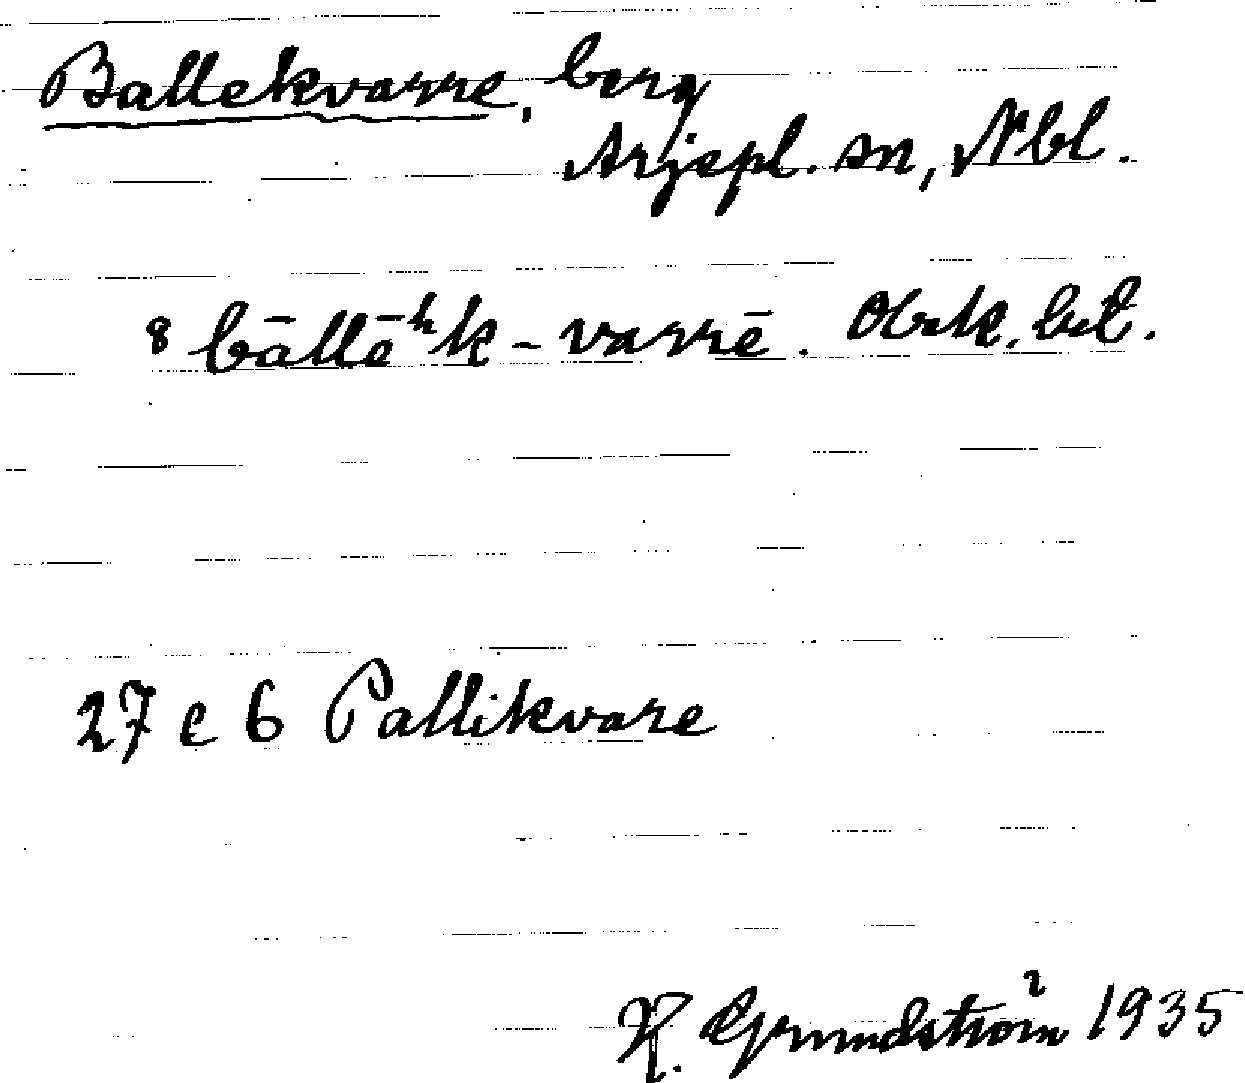 Ballekvarre, berg
Arjepl. sn, Nbl.
8 bāllēʰk-varrē. Obek. bet.
27 e 6 Pallikvare
H. Grundström 1935